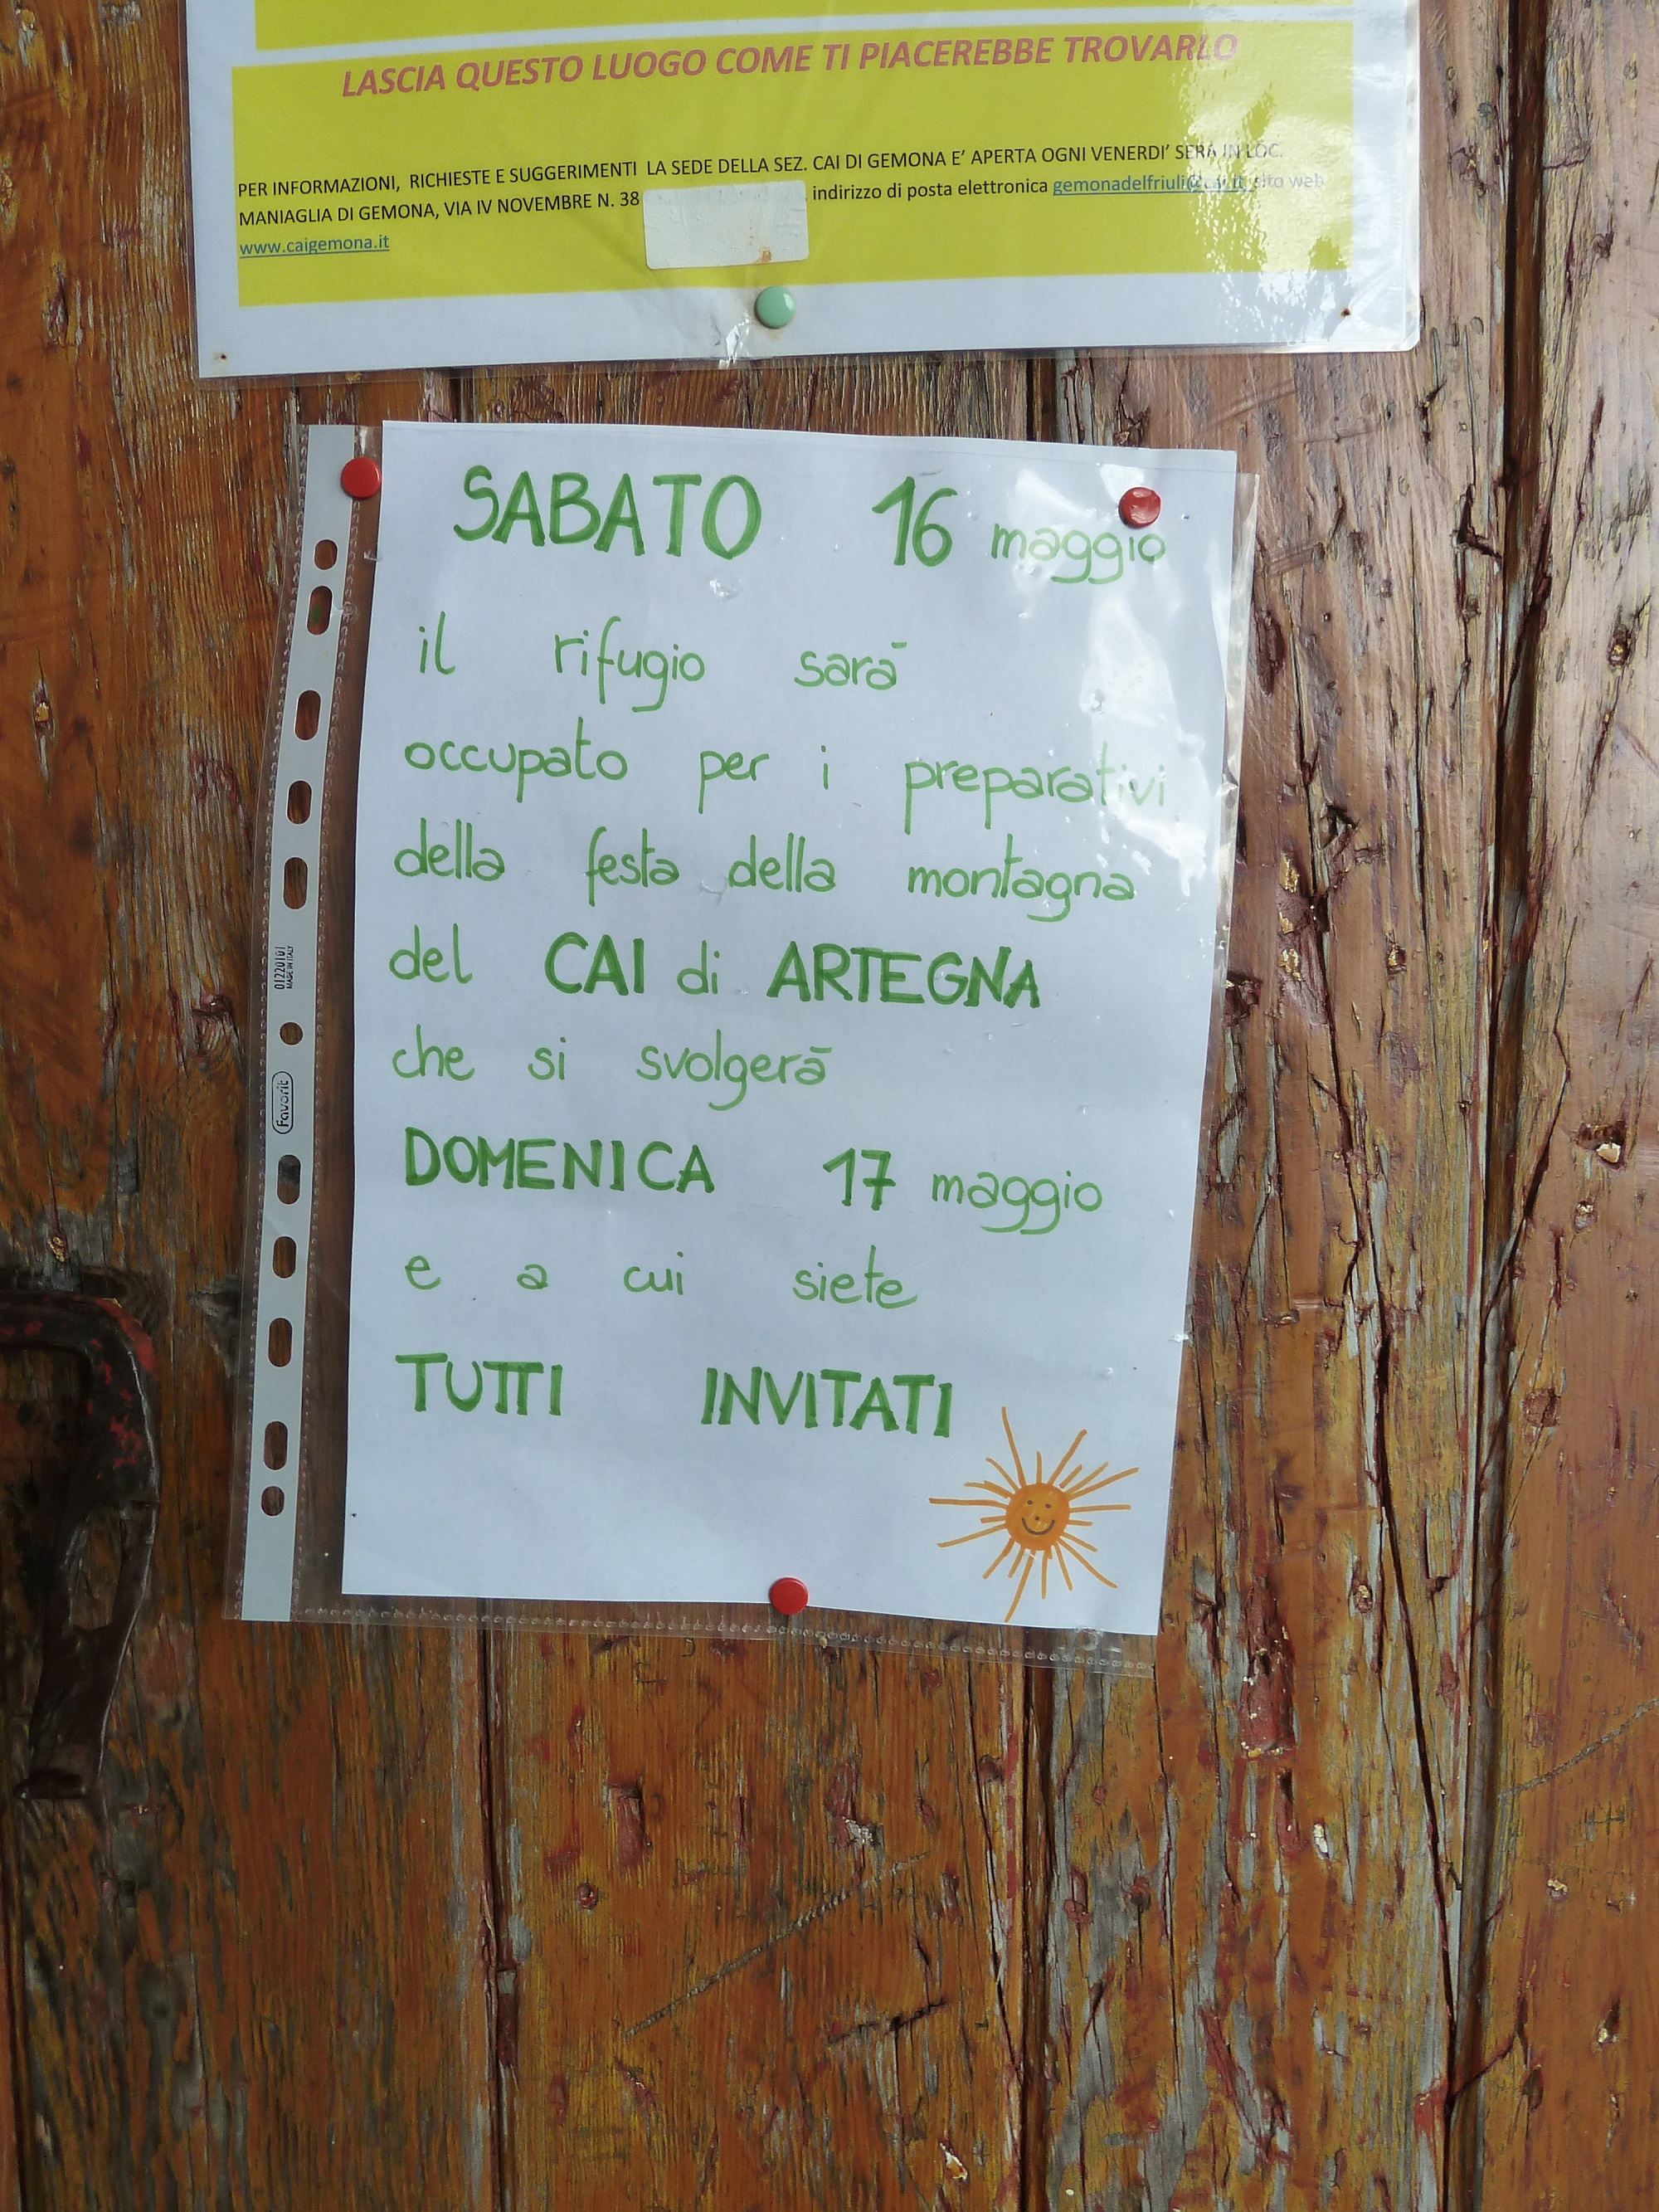 LASCIA QUESTO LUOGO COME TI PIACEREBBE TROVARLO
PER INFORMAZIONI, RICHIESTE E SUGGERIMENTI LA SEDE DELLA SEZ. CAI DI GEMONA E' APERTA OGNI VENERDI' SERA IN LOC.
MANIAGLIA DI GEMONA, VIA IV NOVEMBRE N. 38 , indirizzo di posta elettronica gemonadelfriuli@cai.it sito web
www.caigemona.it
SABATO 16 maggio
il rifugio sarà
occupato per i preparativi
della festa della montagna
del CAI di ARTEGNA
che si svolgerà
DOMENICA 17 maggio
e a cui siete
TUTTI INVITATI
01220101
MADE IN ITALY
Favorit